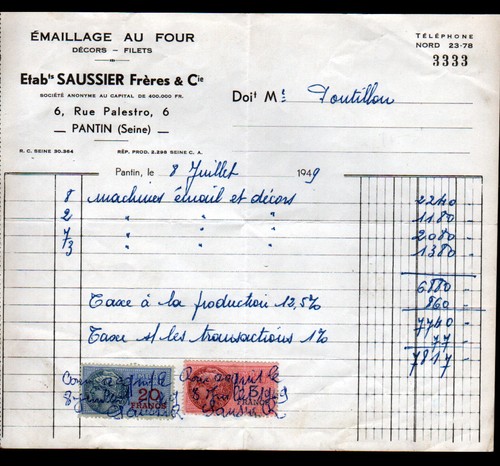 ÉMAILLAGE AU FOUR
DÉCORS - FILETS
Etab.ts SAUSSIER Frères & Cie
SOCIÉTÉ ANONYME AU CAPITAL DE 400.000 FR.
6, Rue Palestro, 6
— PANTIN (Seine) —
R. C. SEINE 30.364 RÉP. PROD. 2.298 SEINE C. A.
TÉLÉPHONE
NORD 23-78
3333
Doit M. Pontillon
Pantin, le 8 Juillet 1949
8 machines émail et décors 2240 -
2 " " " 1180 -
7 " " " 2080 -
3 " " " 1380 -
6880 -
Taxe à la production 12,5% 860 -
7740 -
Taxe s/ les transactions 1% 77 -
7817 -
Pour acquit le Pour acquit le
8 Juillet 8 Juillet 1949
20 FRANCS
FRANCS